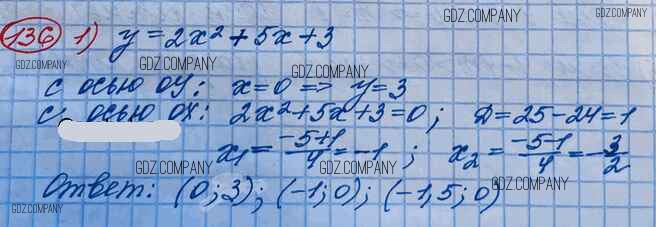 GDZ.COMPANY GDZ.COMPANY
136 1) y = 2x² + 5x + 3
GDZ.COMPANY GDZ.COMPANY
с осью ОУ: x=0 => y=3
с осью ОХ: 2x²+5x+3=0; D=25-24=1
x₁ = -5+1/4 = -1; x₂ = -5-1/4 = -3/2
GDZ.COMPANY GDZ.COMPANY
Ответ: (0;3); (-1;0); (-1,5;0)
GDZ.COMPANY GDZ.COMPANY